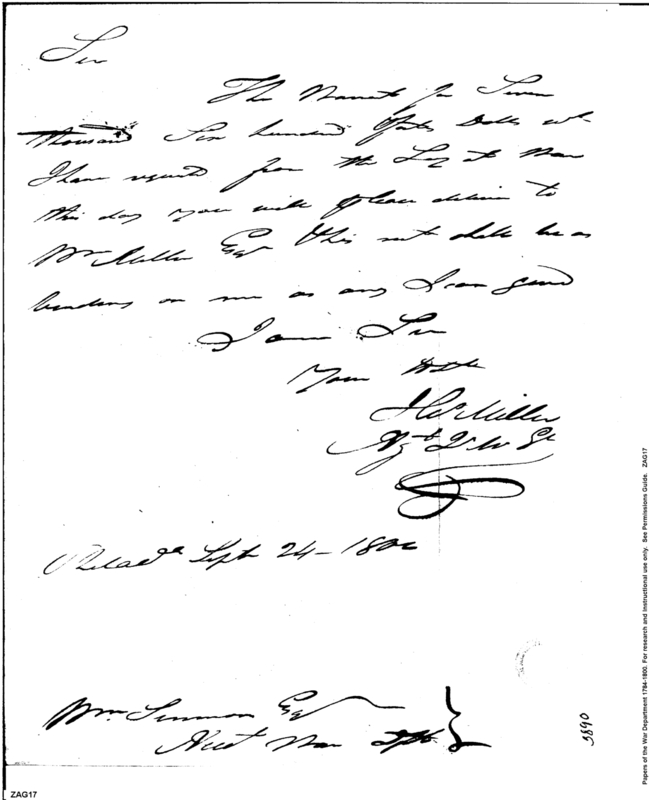 Sir
The Warrant for Seven
thousand Six hundred Dolls wh
I have requested from the Secy at War
this day you will please deliver to
Wm Miller Esqr this rect shall be as
binding on me as any I can give
I am Sir
Your
J Wm Miller
Agt Q M Gl
Philada Sept 24 - 1800
Wm Simmons Esqr
Acct War Dept
3890
ZAG17
Papers of the War Department 1784-1800. For research and Instructional use only. See Permissions Guide. ZAG17